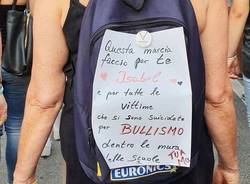 Questa marcia
faccio per te
Isabel
e per tutte le
vittime
che si sono suicidate
per BULLISMO
dentro le mura
delle Scuole
TUA
EURONICS